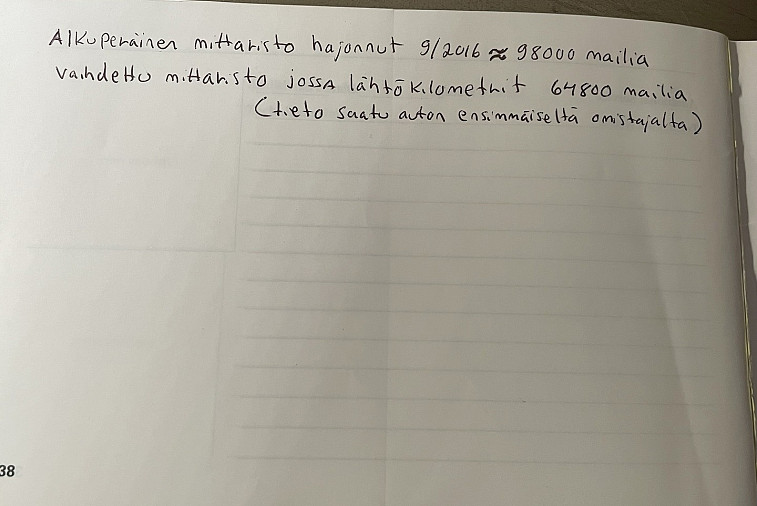 Alkuperäinen mittaristo hajonnut 9/2016 ≈ 98000 mailia
Vaihdettu mittaristo jossa lähtö kilometrit 64800 mailia
(tieto saatu auton ensimmäiseltä omistajalta)
38